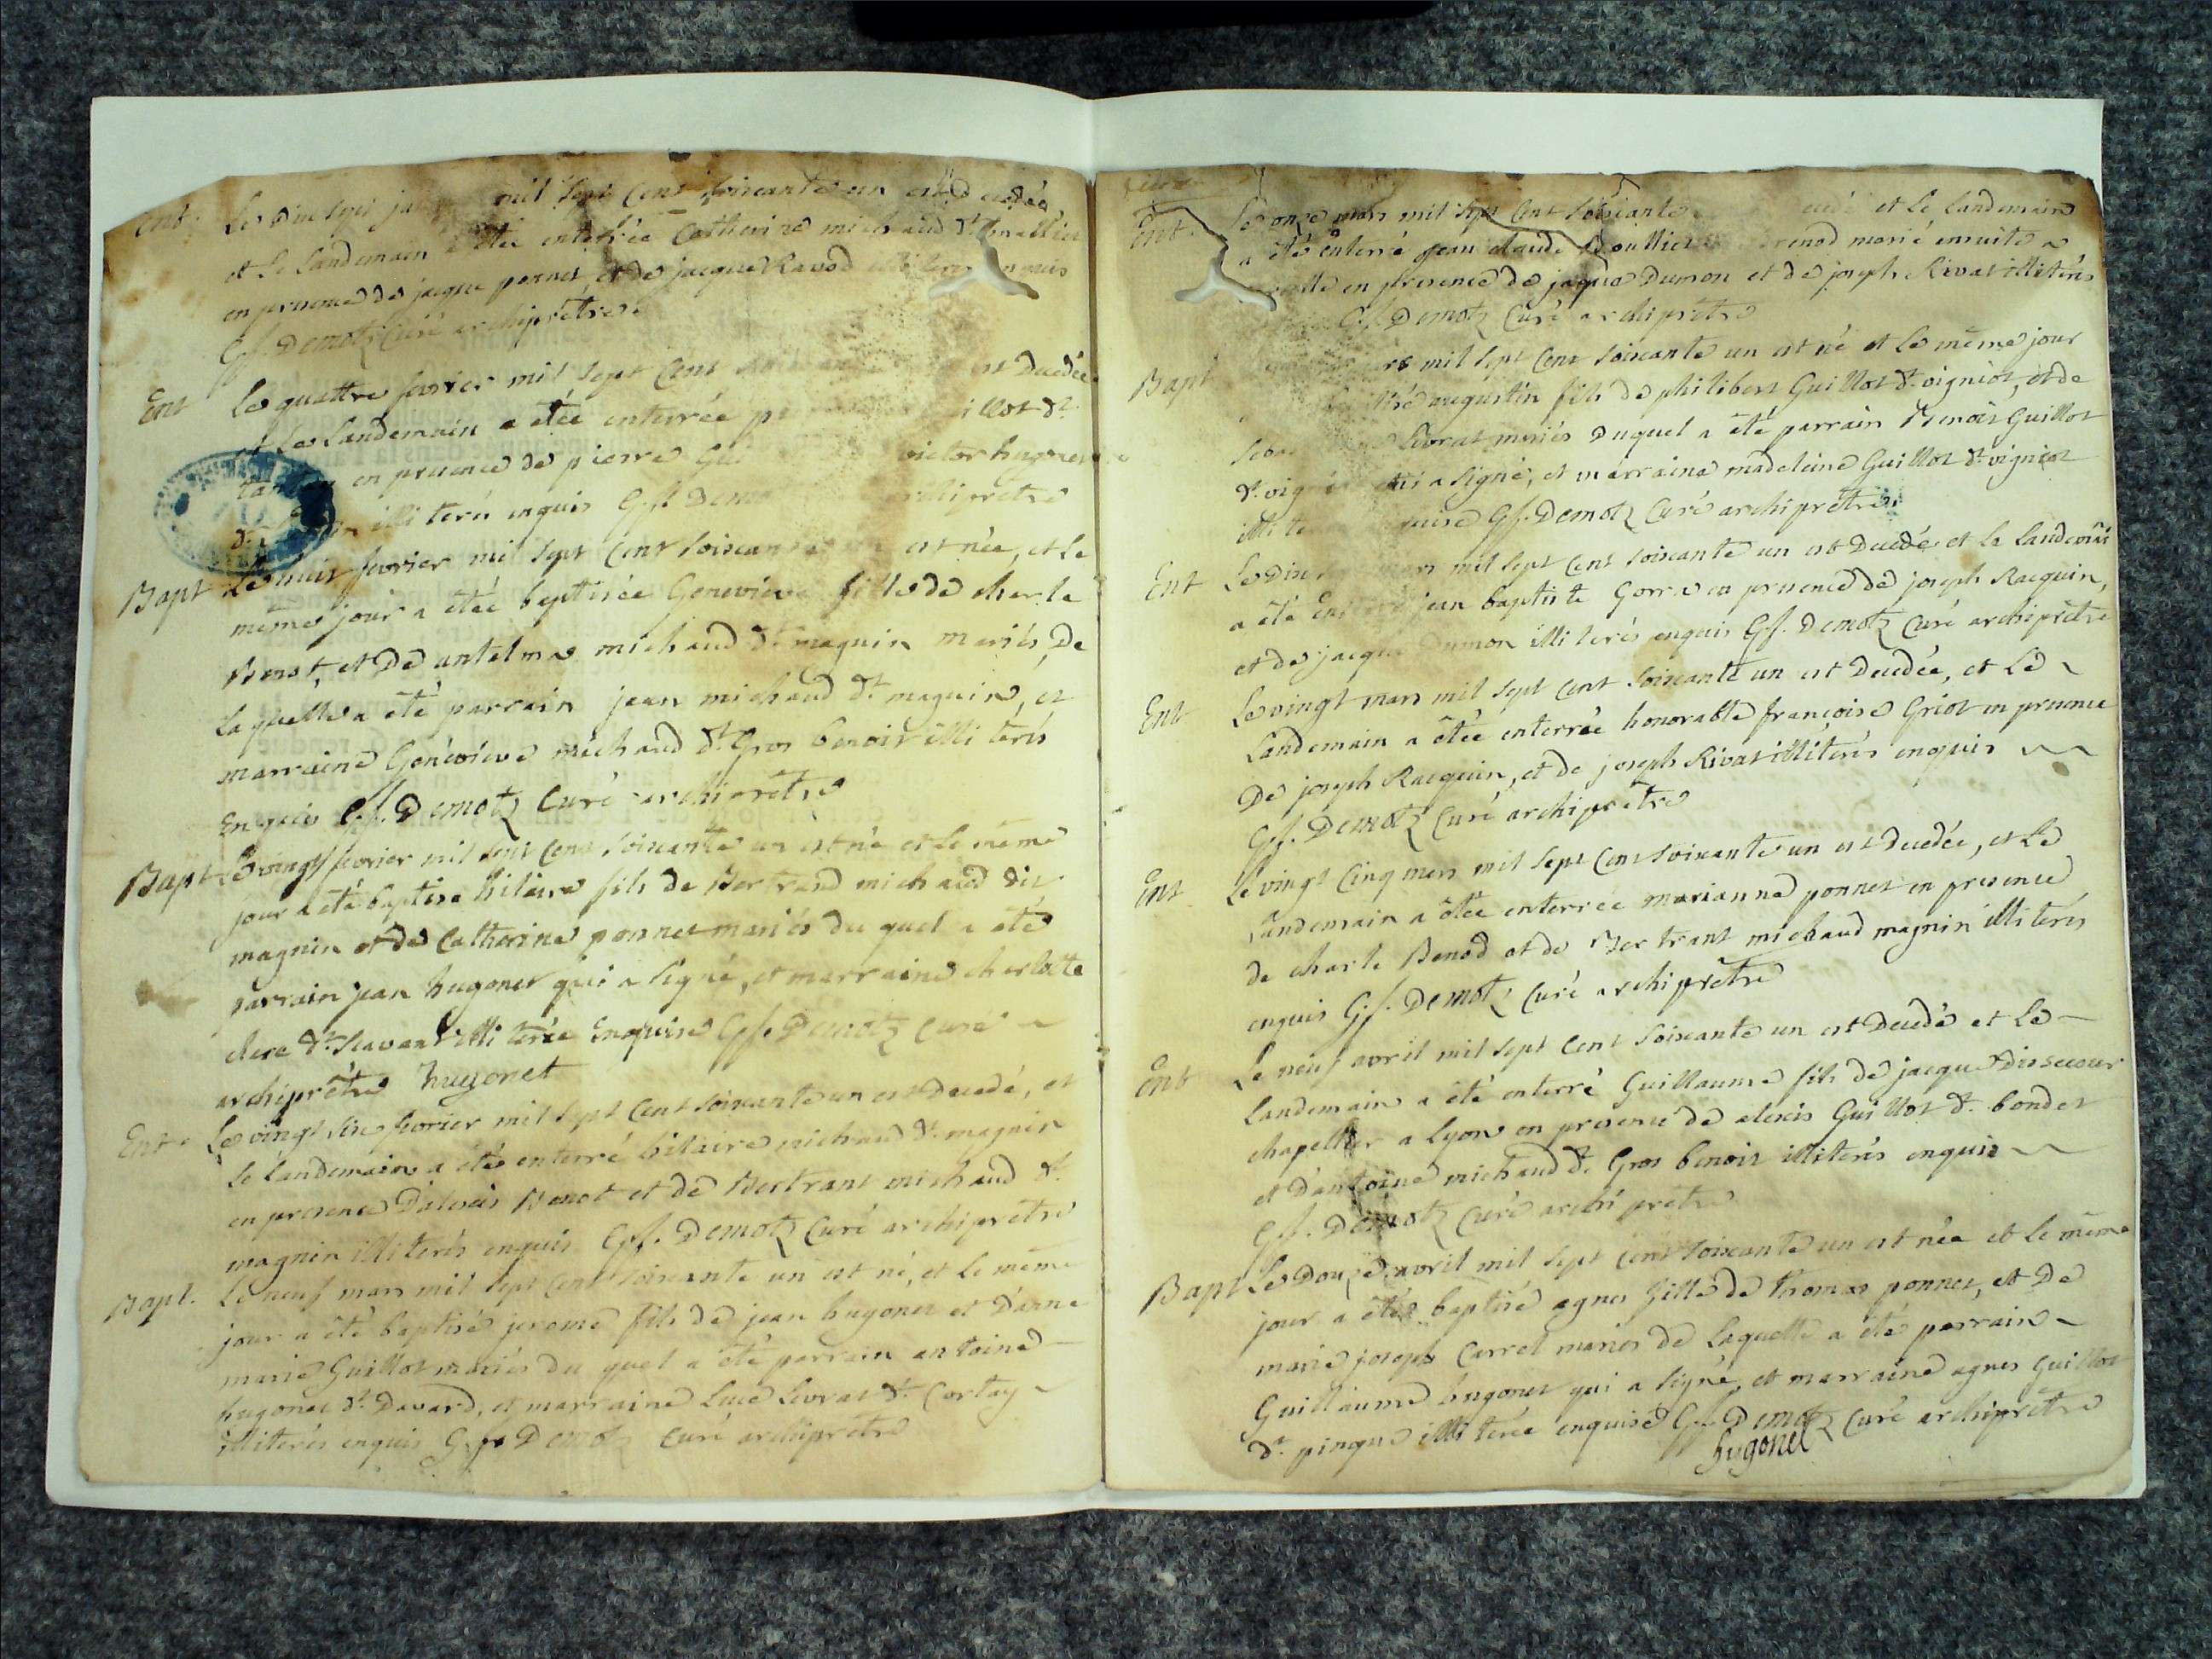 Ent. Le dix sept mil sept cent soixante un est decedée
et le landemain a etée enterrée Catherine michaud
en presence de jacque ponnet, et de jacque Ravod enquis
G.f. Demotz Curé archiprêtre
Ent Le quattre fevrier mil sept cent est decedée
et le landemain a etée enterrée dt.
en presence de pierre victor hugonet
illiterés enquis G.f. archiprêtre
Bapt Le huit fevrier mil sept cent soixante est née, et le
même jour a étée baptisée Geneviève fille de charle
Benot, et De antelma michaud dt. magnin mariés, De
laquelle a été parrain jean michaud dt. magnin, et
marraine Geneviève michaud dt. Gros benoit illiterés
Enquis G.f. Demotz Curé archiprêtre
Bapt Le vingt fevrier mil sept cent soixante un est né et le même
jour a été baptisé hilaire fils de Bertrand michaud dit
magnin et de Catherine ponnet mariés du quel a été
parrain jean hugonet qui a signé, et marraine charlotte
dt. illiterée Enquise G.f. Demotz Curé
archiprêtre hugonet
Ent. Le vingt six fevrier mil sept cent soixante un est decedé, et
le landemain a été enterré hilaire michaud dt. magnin
en presence D'alexis Benot et de Bertrant michaud dt.
magnin illiterés enquis G.f. Demotz Curé archiprêtre
Bapt. Le neuf mars mil sept cent soixante un est né, et le même
jour a été baptisé jerome fils de jean hugonet et D'anne
marie Guillot mariés du quel a été parrain antoine
hugonet dt. Davard, et marraine Luce Livrat dt. Cortay
illiterés enquis G.f. Demotz Curé archiprêtre
Ent. Le onze mars mil sept cent soixante et le landemain
a été enterré jean claude marié ensuite
en presence de jaque Dumon et de joseph Rivat illiterés
G.f. Demotz Curé archiprêtre
Bapt mil sept cent soixante un est né et le même jour
augustin fils de philibert Guillot dt. vigniot, et de
Livrat mariés Duquel a été parrain Benoit Guillot
a signé, et marraine madeleine Guillot dt. vigniot
G.f. Demotz Curé archiprêtre
Ent Le Dix mars mil sept cent soixante un est Decedé et le landemain
a été jean baptiste Gorra en presence de joseph Racquin,
et de jacque Dumon illiterés enquis G.f. Demotz Curé archiprêtre
Ent Le vingt mars mil sept cent soixante un est Decedée, et Le
Landemain a étée enterrée honorable françoise Griot en presence
De joseph Racquin, et de joseph Rivat illiterés enquis
G.f. Demotz Curé archiprêtre
Ent Le vingt cinq mars mil sept cent soixante un est decedée, et Le
Landemain a étée enterrée marianne ponnet en presence
de charle Benod et de Bertrant michaud magnin illiterés
enquis G.f. Demotz Curé archiprêtre
Ent Le neuf avril mil sept cent soixante un est Decedé et Le
Landemain a été enterré Guillaume fils de jacque
chapellier a lyon en presence de alexis Guillot dt. bondet
et d'antoine michaud dt. Gros benoit illiterés enquis
G.f. Demotz Curé archiprêtre
Bapt Le Douze avril mil sept cent soixante un est née et le même
jour a été baptisé agnes fille de Thomas ponnet, et De
marie joseph Carrel mariés de Laquelle a été parrain
Guillaume hugonet qui a signé, et marraine agnes Guillot
dt. pingue illiterée enquise G.f. Demotz Curé archiprêtre
hugonet